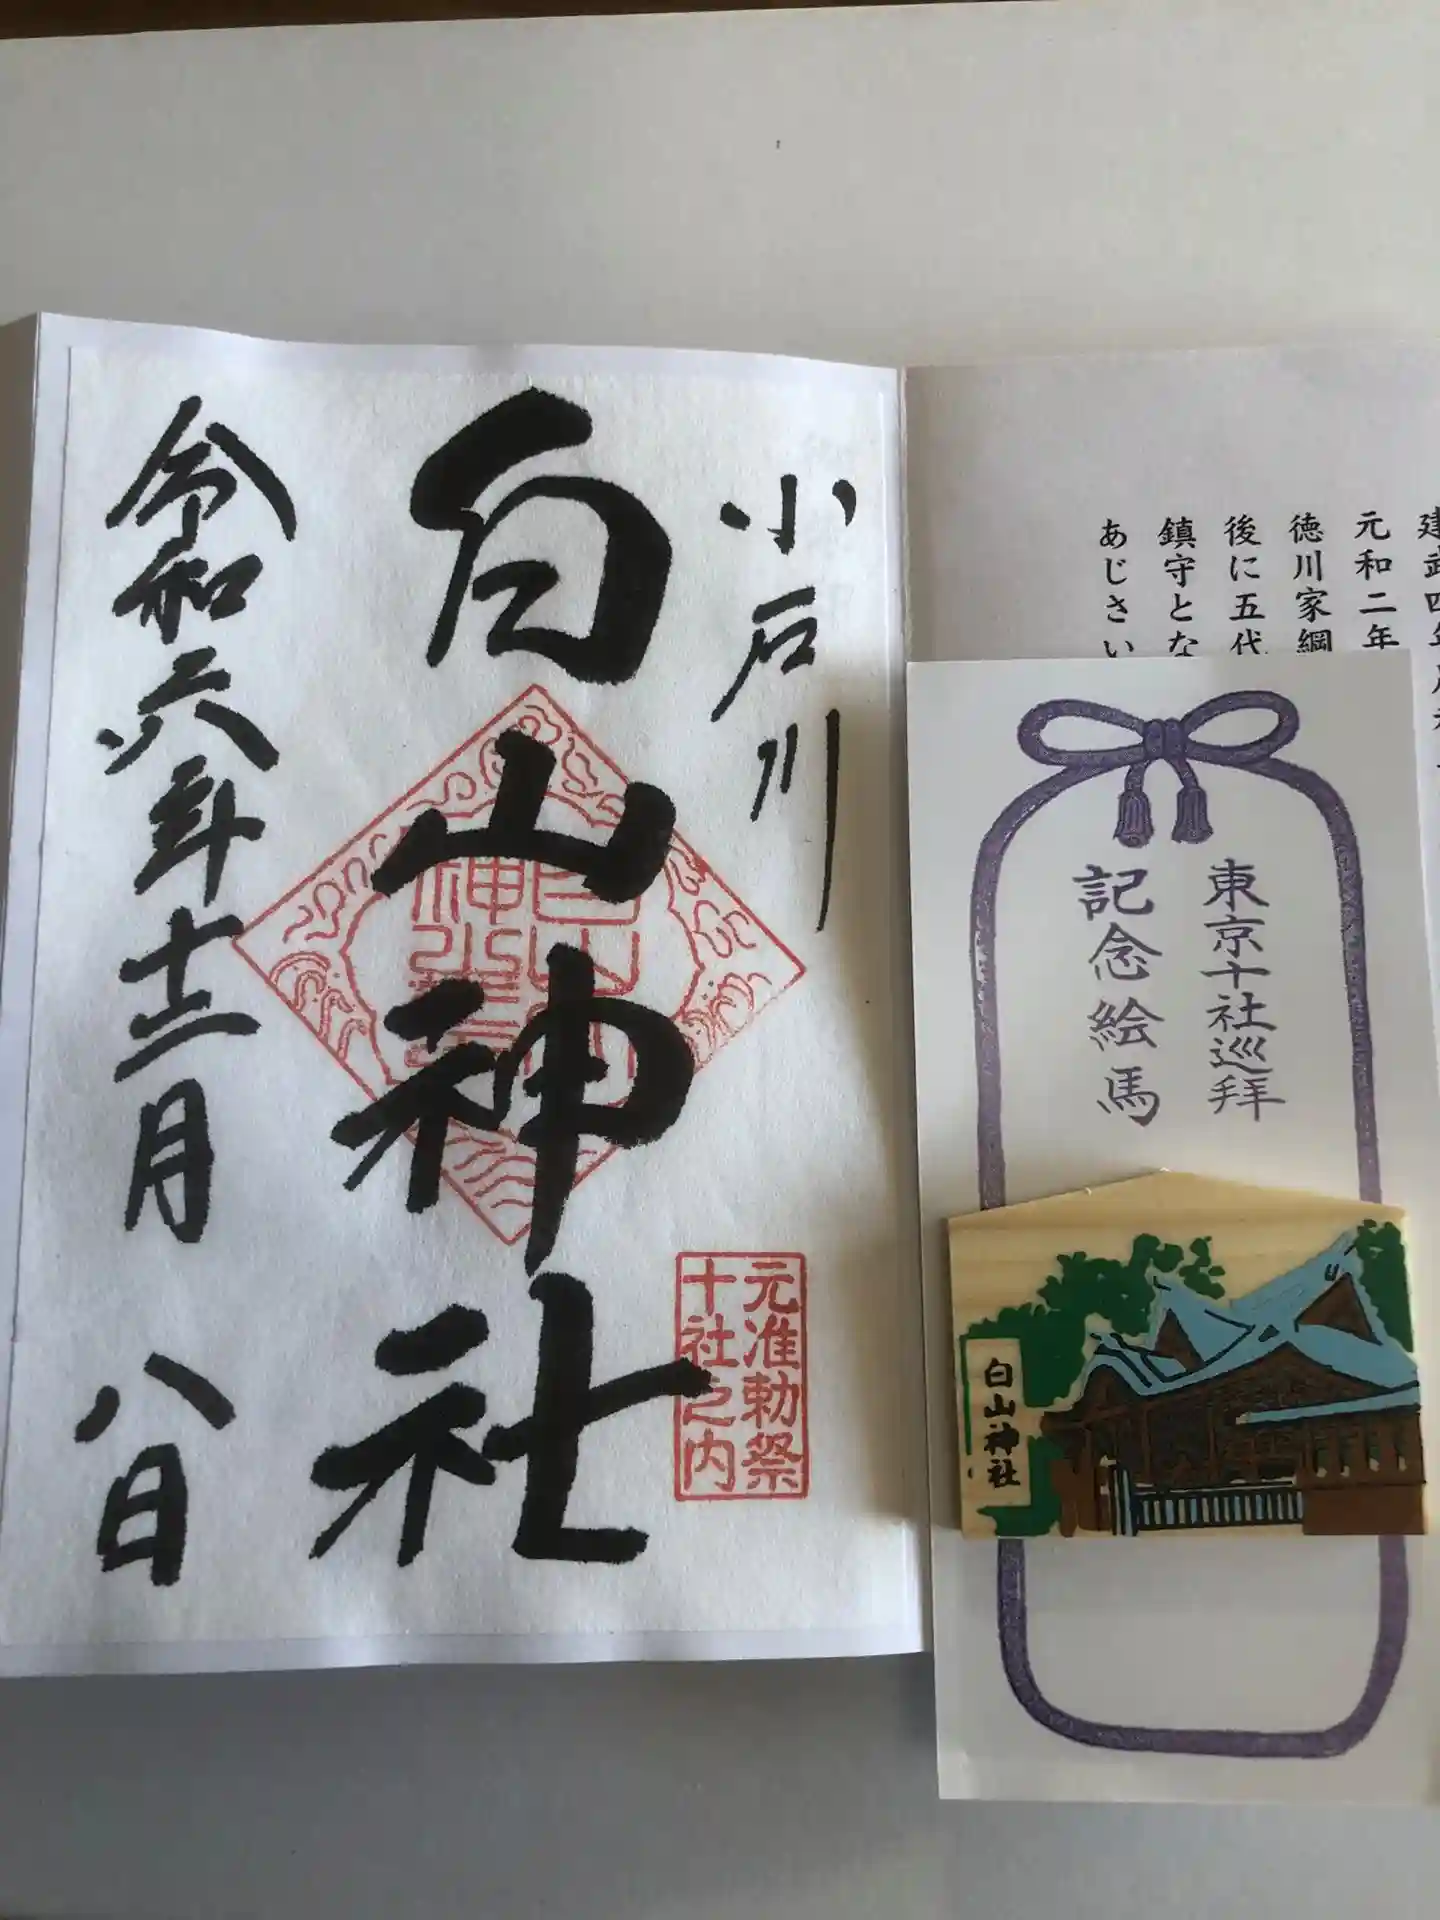 小石川
白山神社
令和六年十二月
八日
元准勅祭
十社之内
元和二年
徳川家綱
後に五代
鎮守とな
あじさい
東京十社巡拝
記念絵馬
白山神社